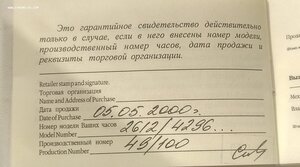 Это гарантийное свидетельство действительно
только в случае, если в него внесены номер модели,
производственный номер часов, дата продажи и
реквизиты торговой организации.
Retailer stamp and signature.
Торговая организация
Name and Address of Purchase
Дата продажи
05.05.2000г
Date of Purchase
Номер модели Ваших часов
2612/4296...
Model Number
Производственный номер
49/100
Production Number